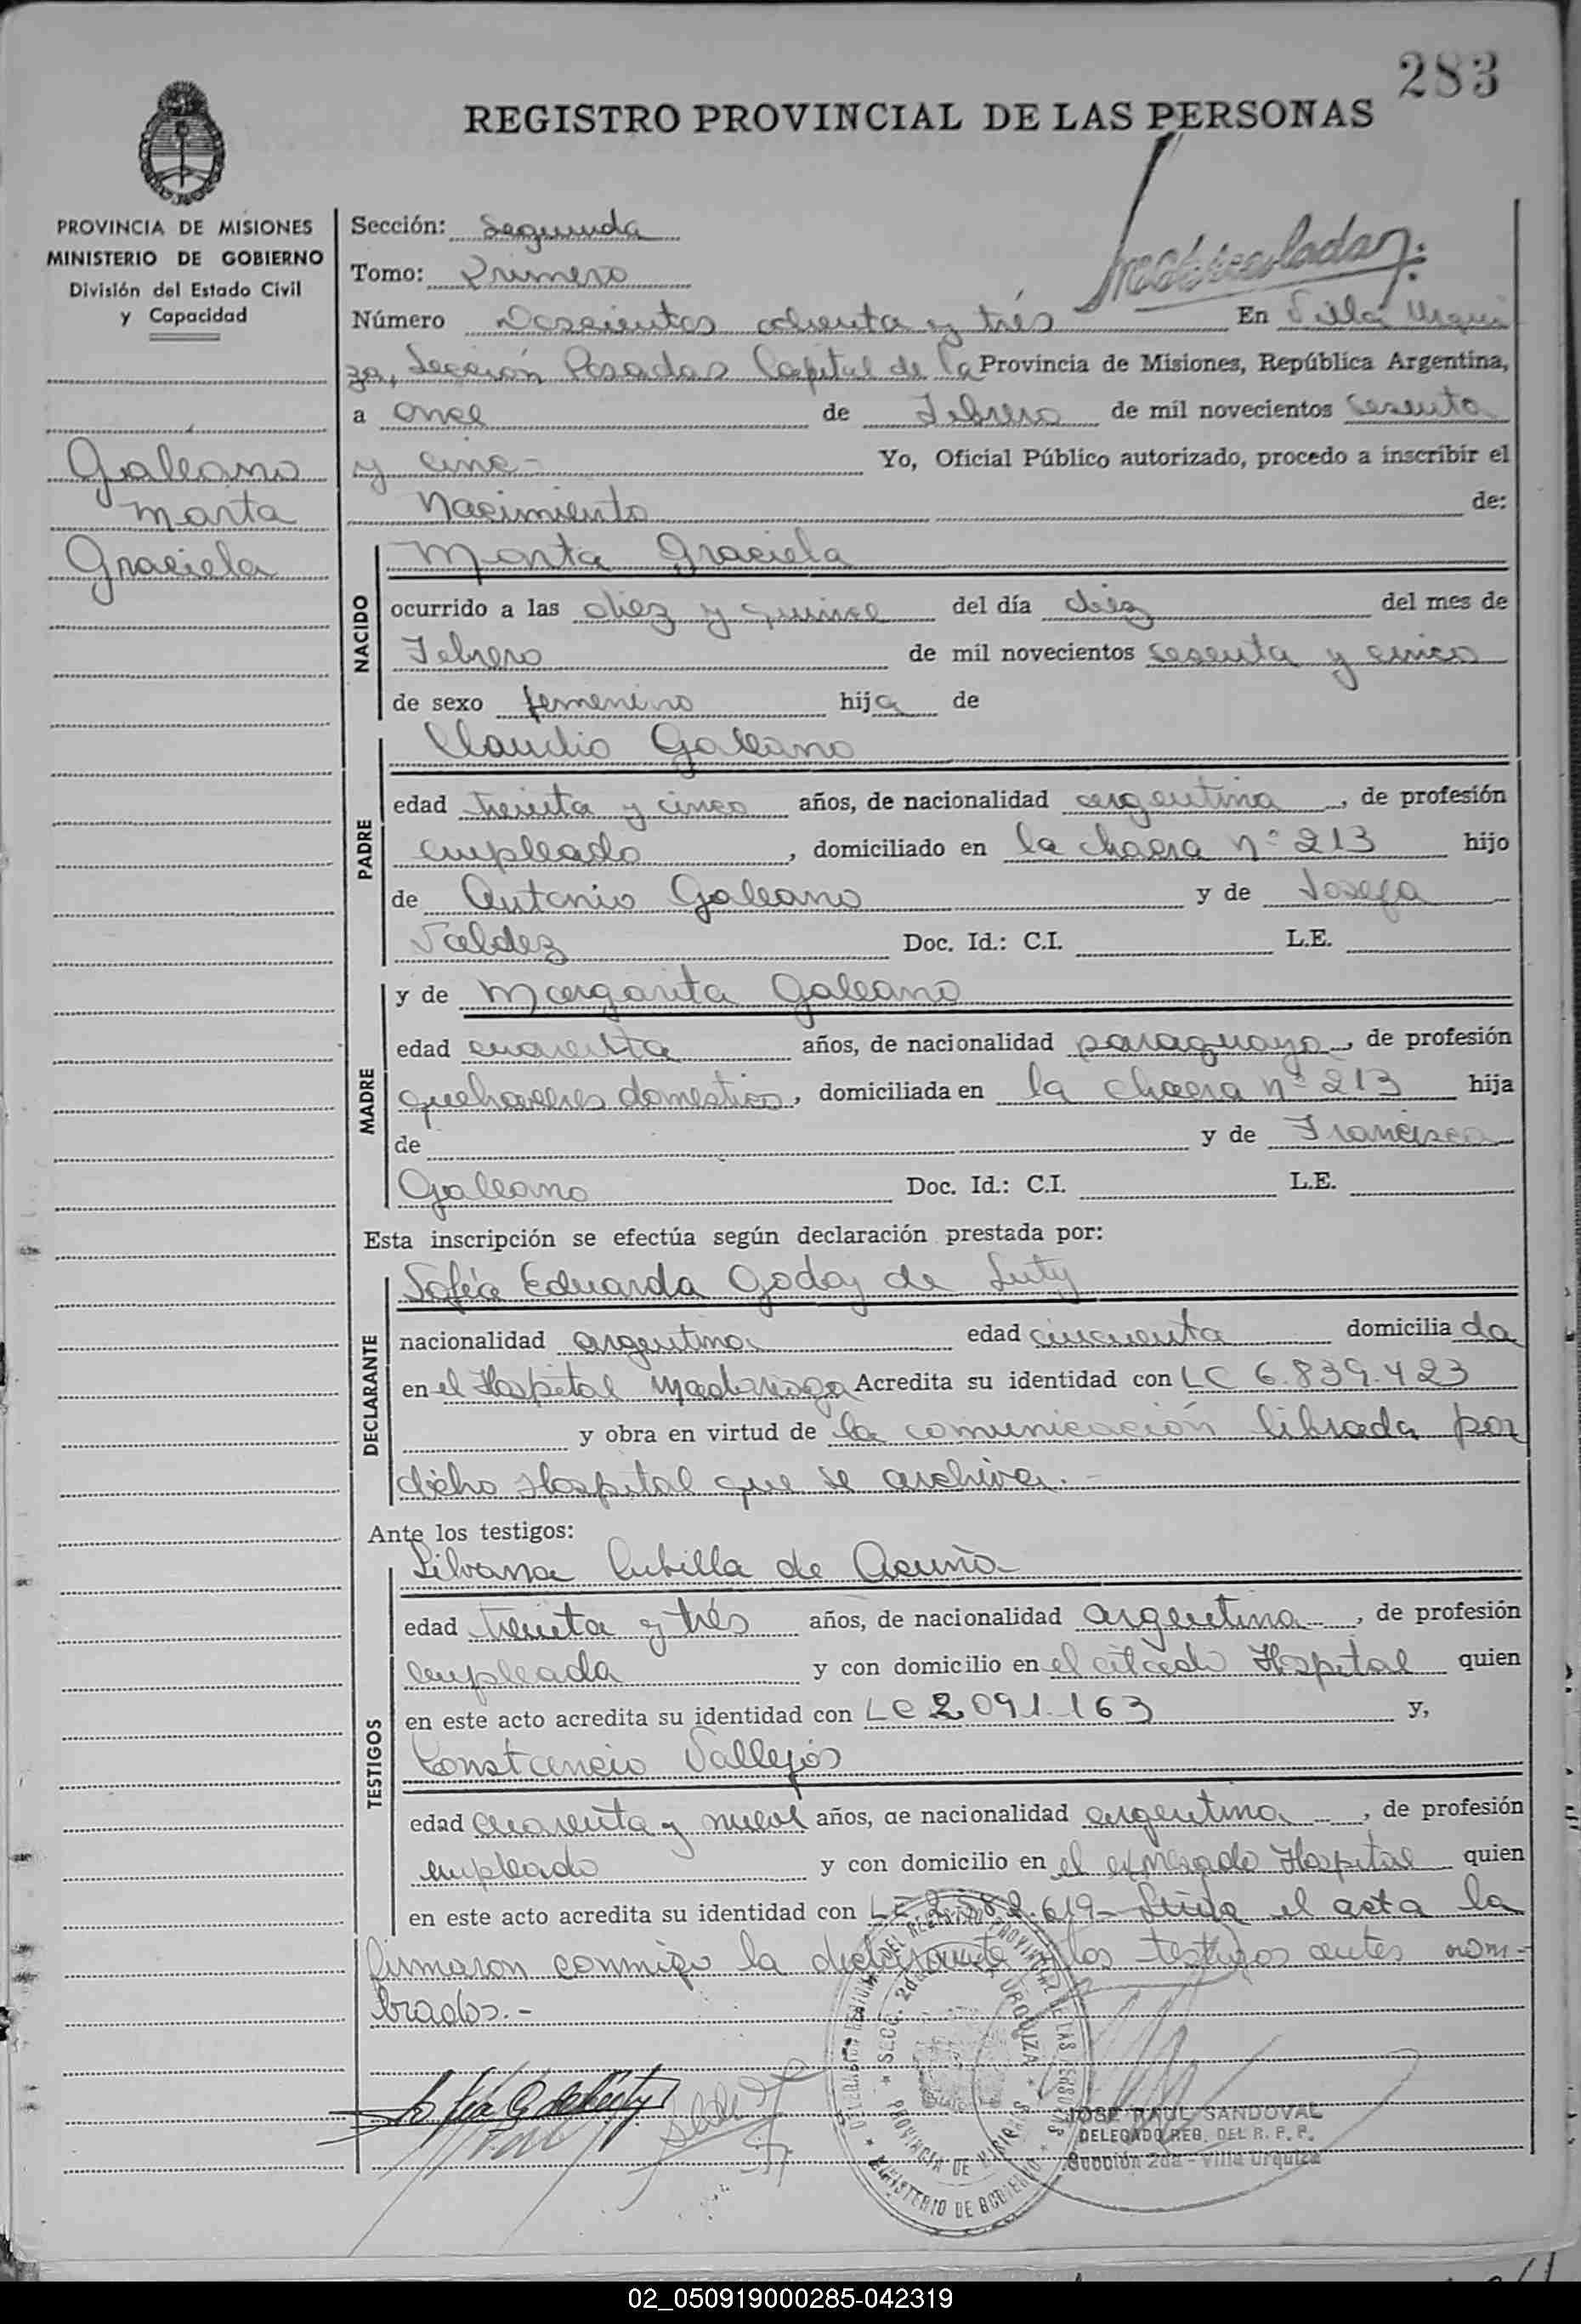 283
REGISTRO PROVINCIAL DE LAS PERSONAS
PROVINCIA DE MISIONES
MINISTERIO DE GOBIERNO
División del Estado Civil
y Capacidad
Galeano
Marta
Graciela
Sección: Segunda
Matriculada
Tomo: Primero
Número Doscientos ochenta y trés En Villa Urqui
za, Sección Posadas Capital de la Provincia de Misiones, República Argentina,
a once de Febrero de mil novecientos sesenta
y cinc- Yo, Oficial Público autorizado, procedo a inscribir el
Nacimiento de:
NACIDO
Marta Graciela
ocurrido a las diez y quince del día diez del mes de
Febrero de mil novecientos sesenta y cinco
de sexo femenino hija de
PADRE
Claudio Galeano
edad treinta y cinco años, de nacionalidad argentina, de profesión
empleado, domiciliado en la chacra nº 213 hijo
de Antonio Galeano y de Josefa
Valdez Doc. Id.: C.I. L.E.
MADRE
y de Margarita Galeano
edad cuarenta años, de nacionalidad paraguaya, de profesión
quehaceres domesticos, domiciliada en la chacra nº 213 hija
de y de Francisca
Galeano Doc. Id.: C.I. L.E.
Esta inscripción se efectúa según declaración prestada por:
DECLARANTE
Sofía Eduarda Godoy de Luty
nacionalidad argentina edad cincuenta domiciliada
en el Hospital Madariaga Acredita su identidad con LC 6.839.423
y obra en virtud de la comunicación librada por
dicho Hospital que se archiva.-
Ante los testigos:
TESTIGOS
Silvana Cubilla de Acuña
edad treinta y trés años, de nacionalidad argentina, de profesión
empleada y con domicilio en el citado Hospital quien
en este acto acredita su identidad con LC 2.091.163 y,
Constancio Vallejos
edad cuarenta y nueve años, de nacionalidad argentina, de profesión
empleado y con domicilio en el expresado Hospital quien
en este acto acredita su identidad con LE 2.582.619- Leída el acta la
firmaron conmigo la declarante y los testigos antes nom-
brados.-
SECC. 2da URQUIZA
PROVINCIA DE MISIONES
MINISTERIO DE GOBIERNO
JOSE RAUL SANDOVAL
DELEGADO REG. DEL R. P. P.
Sección 2da - Villa Urquiza
02_050919000285-042319